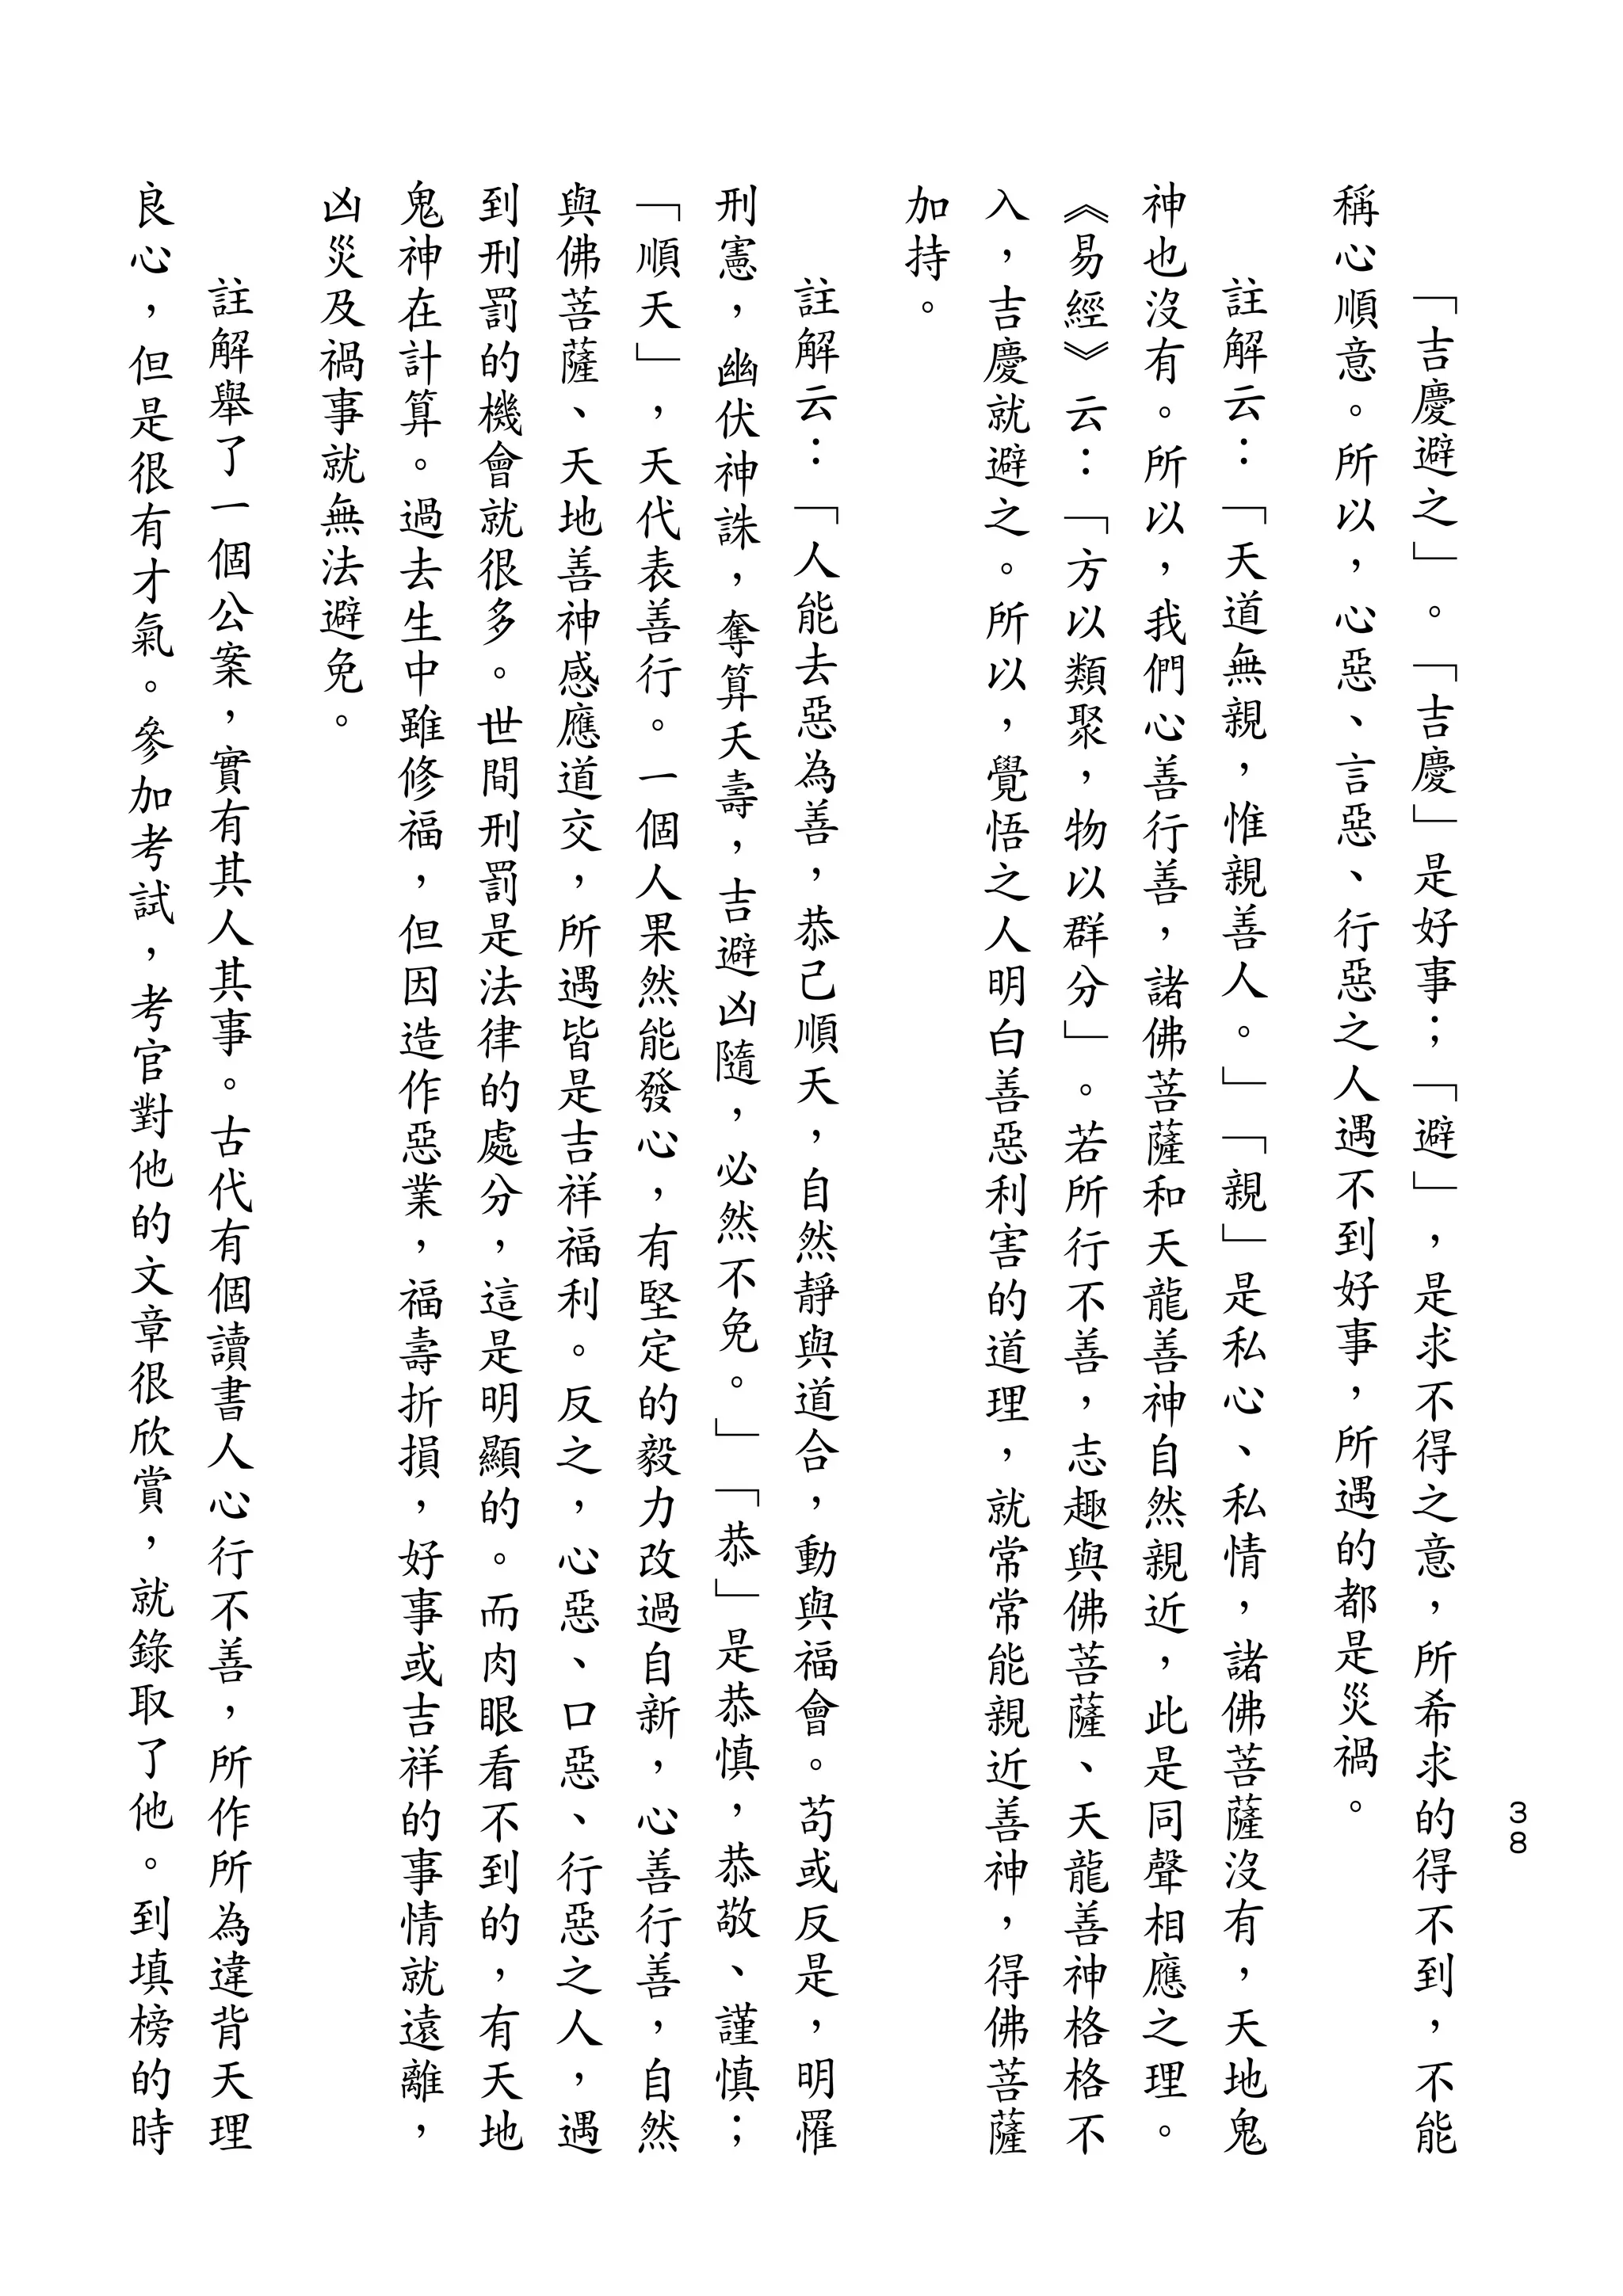 38
「吉慶避之」。「吉慶」是好事；「避」，是求不得之意，所希求的得不到，不能
稱心順意。所以，心惡、言惡、行惡之人遇不到好事，所遇的都是災禍。
註解云：「天道無親，惟親善人。」「親」是私心、私情，諸佛菩薩沒有，天地鬼
神也沒有。所以，我們心善行善，諸佛菩薩和天龍善神自然親近，此是同聲相應之理。
《易經》云：「方以類聚，物以群分」。若所行不善，志趣與佛菩薩、天龍善神格格不
入，吉慶就避之。所以，覺悟之人明白善惡利害的道理，就常常能親近善神，得佛菩薩
加持。
註解云：「人能去惡為善，恭己順天，自然靜與道合，動與福會。苟或反是，明罹
刑憲，幽伏神誅，奪算夭壽，吉避凶隨，必然不免。」「恭」是恭慎，恭敬、謹慎；
「順天」，天代表善行。一個人果然能發心，有堅定的毅力改過自新，心善行善，自然
與佛菩薩、天地善神感應道交，所遇皆是吉祥福利。反之，心惡、口惡、行惡之人，遇
到刑罰的機會就很多。世間刑罰是法律的處分，這是明顯的。而肉眼看不到的，有天地
鬼神在計算。過去生中雖修福，但因造作惡業，福壽折損，好事或吉祥的事情就遠離，
凶災及禍事就無法避免。
註解舉了一個公案，實有其人其事。古代有個讀書人心行不善，所作所為違背天理
良心，但是很有才氣。參加考試，考官對他的文章很欣賞，就錄取了他。到填榜的時